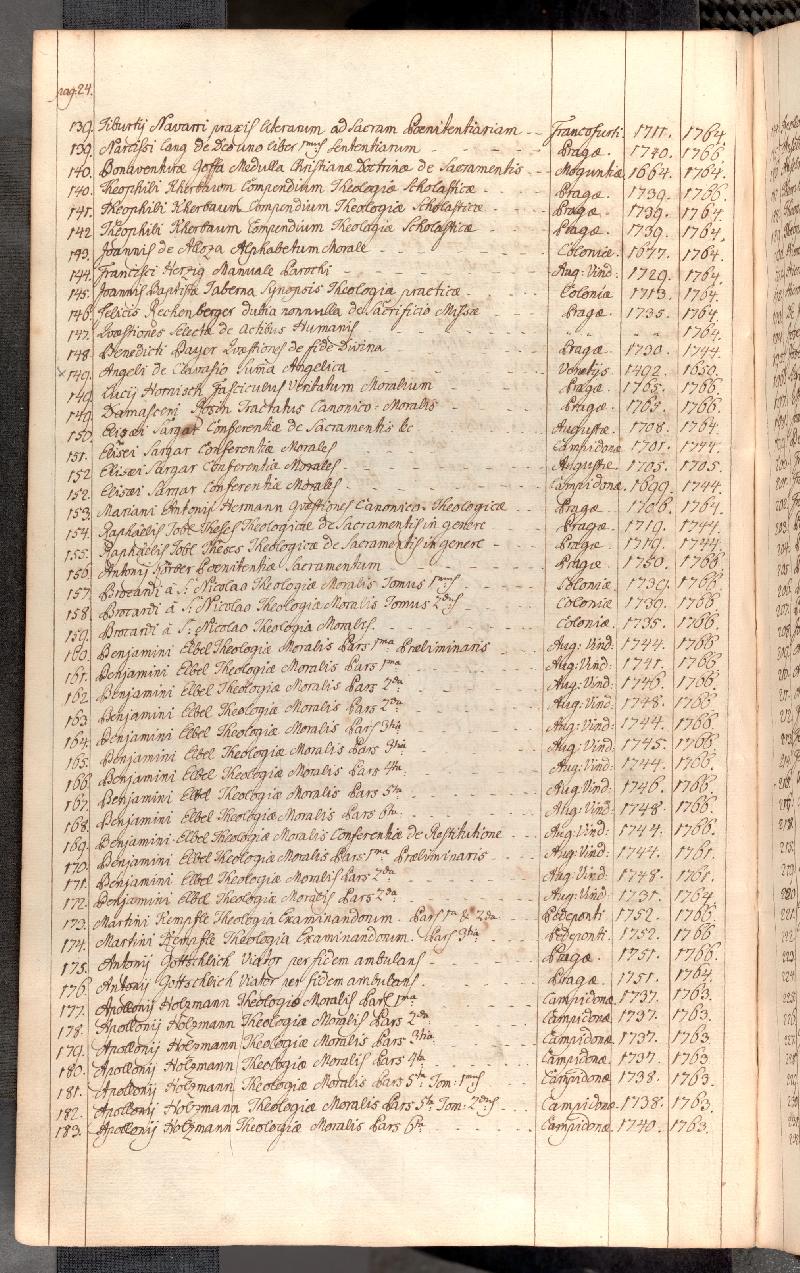 pag: 24.
139. Tiburtij Navarri praxis literarum ad Sacram Pœnitentiariam - - Francofurti. 1711. 1764.
139. Narcissi Cang de uno Liber 1mus Sententiarum - - - - Pragæ. 1740. 1766.
140. Bonaventuræ Goffa Medulla Christianæ Doctrinæ de Sacramentis - - - Moguntiæ 1664. 1764.
140. Theophili Kherbaum Compendium Theologiæ Scholasticæ - - - Pragæ. 1739. 1766.
141. Theophili Kherbaum Compendium Theologiæ Scholasticæ - - - Pragæ. 1739. 1764.
142 Theophili Kherbaum Compendium Theologiæ Scholasticæ - - - Pragæ. 1739. 1764.
143. Joannis de Aloza Alphabetum Morale - - - Coloniæ. 1677. 1764.
144. Francisci Herzig Manuale Parochi - - - Aug: Vind: 1729. 1764.
145. Joannis Baptistæ Taberna Synopsis Theologia practicæ - - - Coloniæ 1713. 1764.
146. Felicis Reckenberger dubia nonnulla de Sacrificio Missæ - - - Pragæ. 1735. 1764.
147. Quæstiones Selectæ de Actibus Humanis - - - " " " 1764.
148. Benedicti Bayer Quæstiones de fide Divina - - - Pragæ. 1730. 1744.
× 149. Angeli de Clavasio Suma Angelica - - - Venetijs 1492. 1650.
149. Lucij Hornisch Fasciculus Veritatum Moralium - - - Pragæ. 1765. 1766.
149. Damasceni Rosin Tractatus Canonico-Moralis - - - Pragæ. 1765. 1766.
150. Elisæi Sargar Conferentiæ de Sacramentis &c - - - Augustæ. 1708. 1764.
151. Elisei Sargar Conferentiæ Morales - - - Campidonæ 1701. 1744.
152 Elisæi Sargar Conferentiæ Morales - - - Augustæ. 1705. 1705.
152. Elisæi Sargar Conferentiæ Morales - - - Campidonæ. 1699. 1744.
153. Mariani Antonij Hermann Quæstiones Canonico-Theologicæ - - - Pragæ. 1706. 1764.
154. Raphaelis Tobl Theses Theologicæ de Sacramentis in genere - - - Pragæ. 1719. 1744.
155. Raphaelis Tobl Theses Theologicæ de Sacramentis in genere - - - Pragæ. 1719. 1744.
156. Antonij Harder Pœnitentiæ Sacramentum - - - Pragæ. 1750. 1766.
157. Brocardi à S: Nicolao Theologiæ Moralis Tomus 1mus - - - Coloniæ. 1739. 1766.
158 Brocardi à S: Nicolao Theologiæ Moralis Tomus 2dus - - - Coloniæ 1739. 1766.
159. Brocardi à S: Nicolao Theologia Moralis. - - - Coloniæ. 1735. 1766.
160. Benjamini Elbel Theologiæ Moralis Pars 1ma Præliminaris - - - Aug: Vind: 1744. 1766.
161. Benjamini Elbel Theologiæ Moralis Pars 1ma - - - Aug: Vind: 1741. 1766.
162. Benjamini Elbel Theologiæ Moralis Pars 2da - - - Aug: Vind: 1746. 1766.
163 Benjamini Elbel Theologiæ Moralis Pars 2da - - - Aug: Vind: 1748. 1766.
164. Benjamini Elbel Theologiæ Moralis Pars 3tia - - - Aug: Vind: 1744. 1766.
165. Benjamini Elbel Theologiæ Moralis Pars 3tia - - - Aug: Vind: 1745. 1766.
166. Benjamini Elbel Theologiæ Moralis Pars 4ta - - - Aug: Vind: 1744. 1766.
167. Benjamini Elbel Theologiæ Moralis Pars 5ta - - - Aug: Vind: 1746. 1766.
168. Benjamini Elbel Theologiæ Moralis Pars 6ta - - - Aug: Vind: 1748. 1766.
169. Benjamini Elbel Theologiæ Moralis Conferentiæ de Restitutione - - - Aug: Vind: 1744. 1766.
170. Benjamini Elbel Theologiæ Moralis Pars 1ma Præliminaris - - - Aug: Vind: 1744. 1761.
171. Benjamini Elbel Theologiæ Moralis Pars 2da - - - Aug: Vind: 1748. 1761.
172. Benjamini Elbel Theologiæ Moralis Pars 2da - - - Aug: Vind: 1731. 1764.
173. Martini Kempfle Theologia Examinandorum. Pars 1a & 2da - - - Pedeponti. 1752. 1766.
174. Martini Kempfle Theologia Examinandorum. Pars 3tia - - - Pedeponti. 1752. 1766.
175. Antonij Gottschlich Viator per fidem ambulans - - - Pragæ. 1751. 1766.
176. Antonij Gottschlich Viator per fidem ambulans - - - Pragæ. 1751. 1764.
177. Apollonij Holzmann Theologiæ Moralis Pars 1ma - - - Campidonæ 1737. 1763.
178. Apollonij Holzmann Theologiæ Moralis Pars 2da - - - Campidonæ 1737. 1763.
179. Apollonij Holzmann Theologiæ Moralis Pars 3tia - - - Campidonæ 1737. 1763.
180. Apollonij Holzmann Theologiæ Moralis Pars 4ta - - - Campidonæ 1737. 1763.
181. Apollonij Holzmann Theologiæ Moralis Pars 5ta Tom: 1mus - - - Campidonæ 1738. 1763.
182. Apollonij Holzmann Theologiæ Moralis Pars 5ta Tom: 2dus - - - Campidonæ 1738. 1763.
183. Apollonij Holzmann Theologiæ Moralis Pars 6ta - - - Campidonæ 1740. 1763.